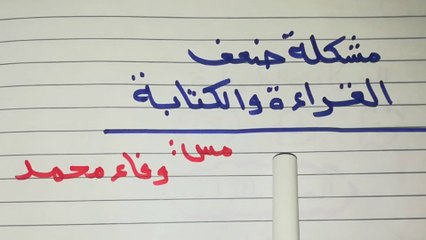 مشكلة ضعف
القراءة والكتابة
مس:
وفاء محمد